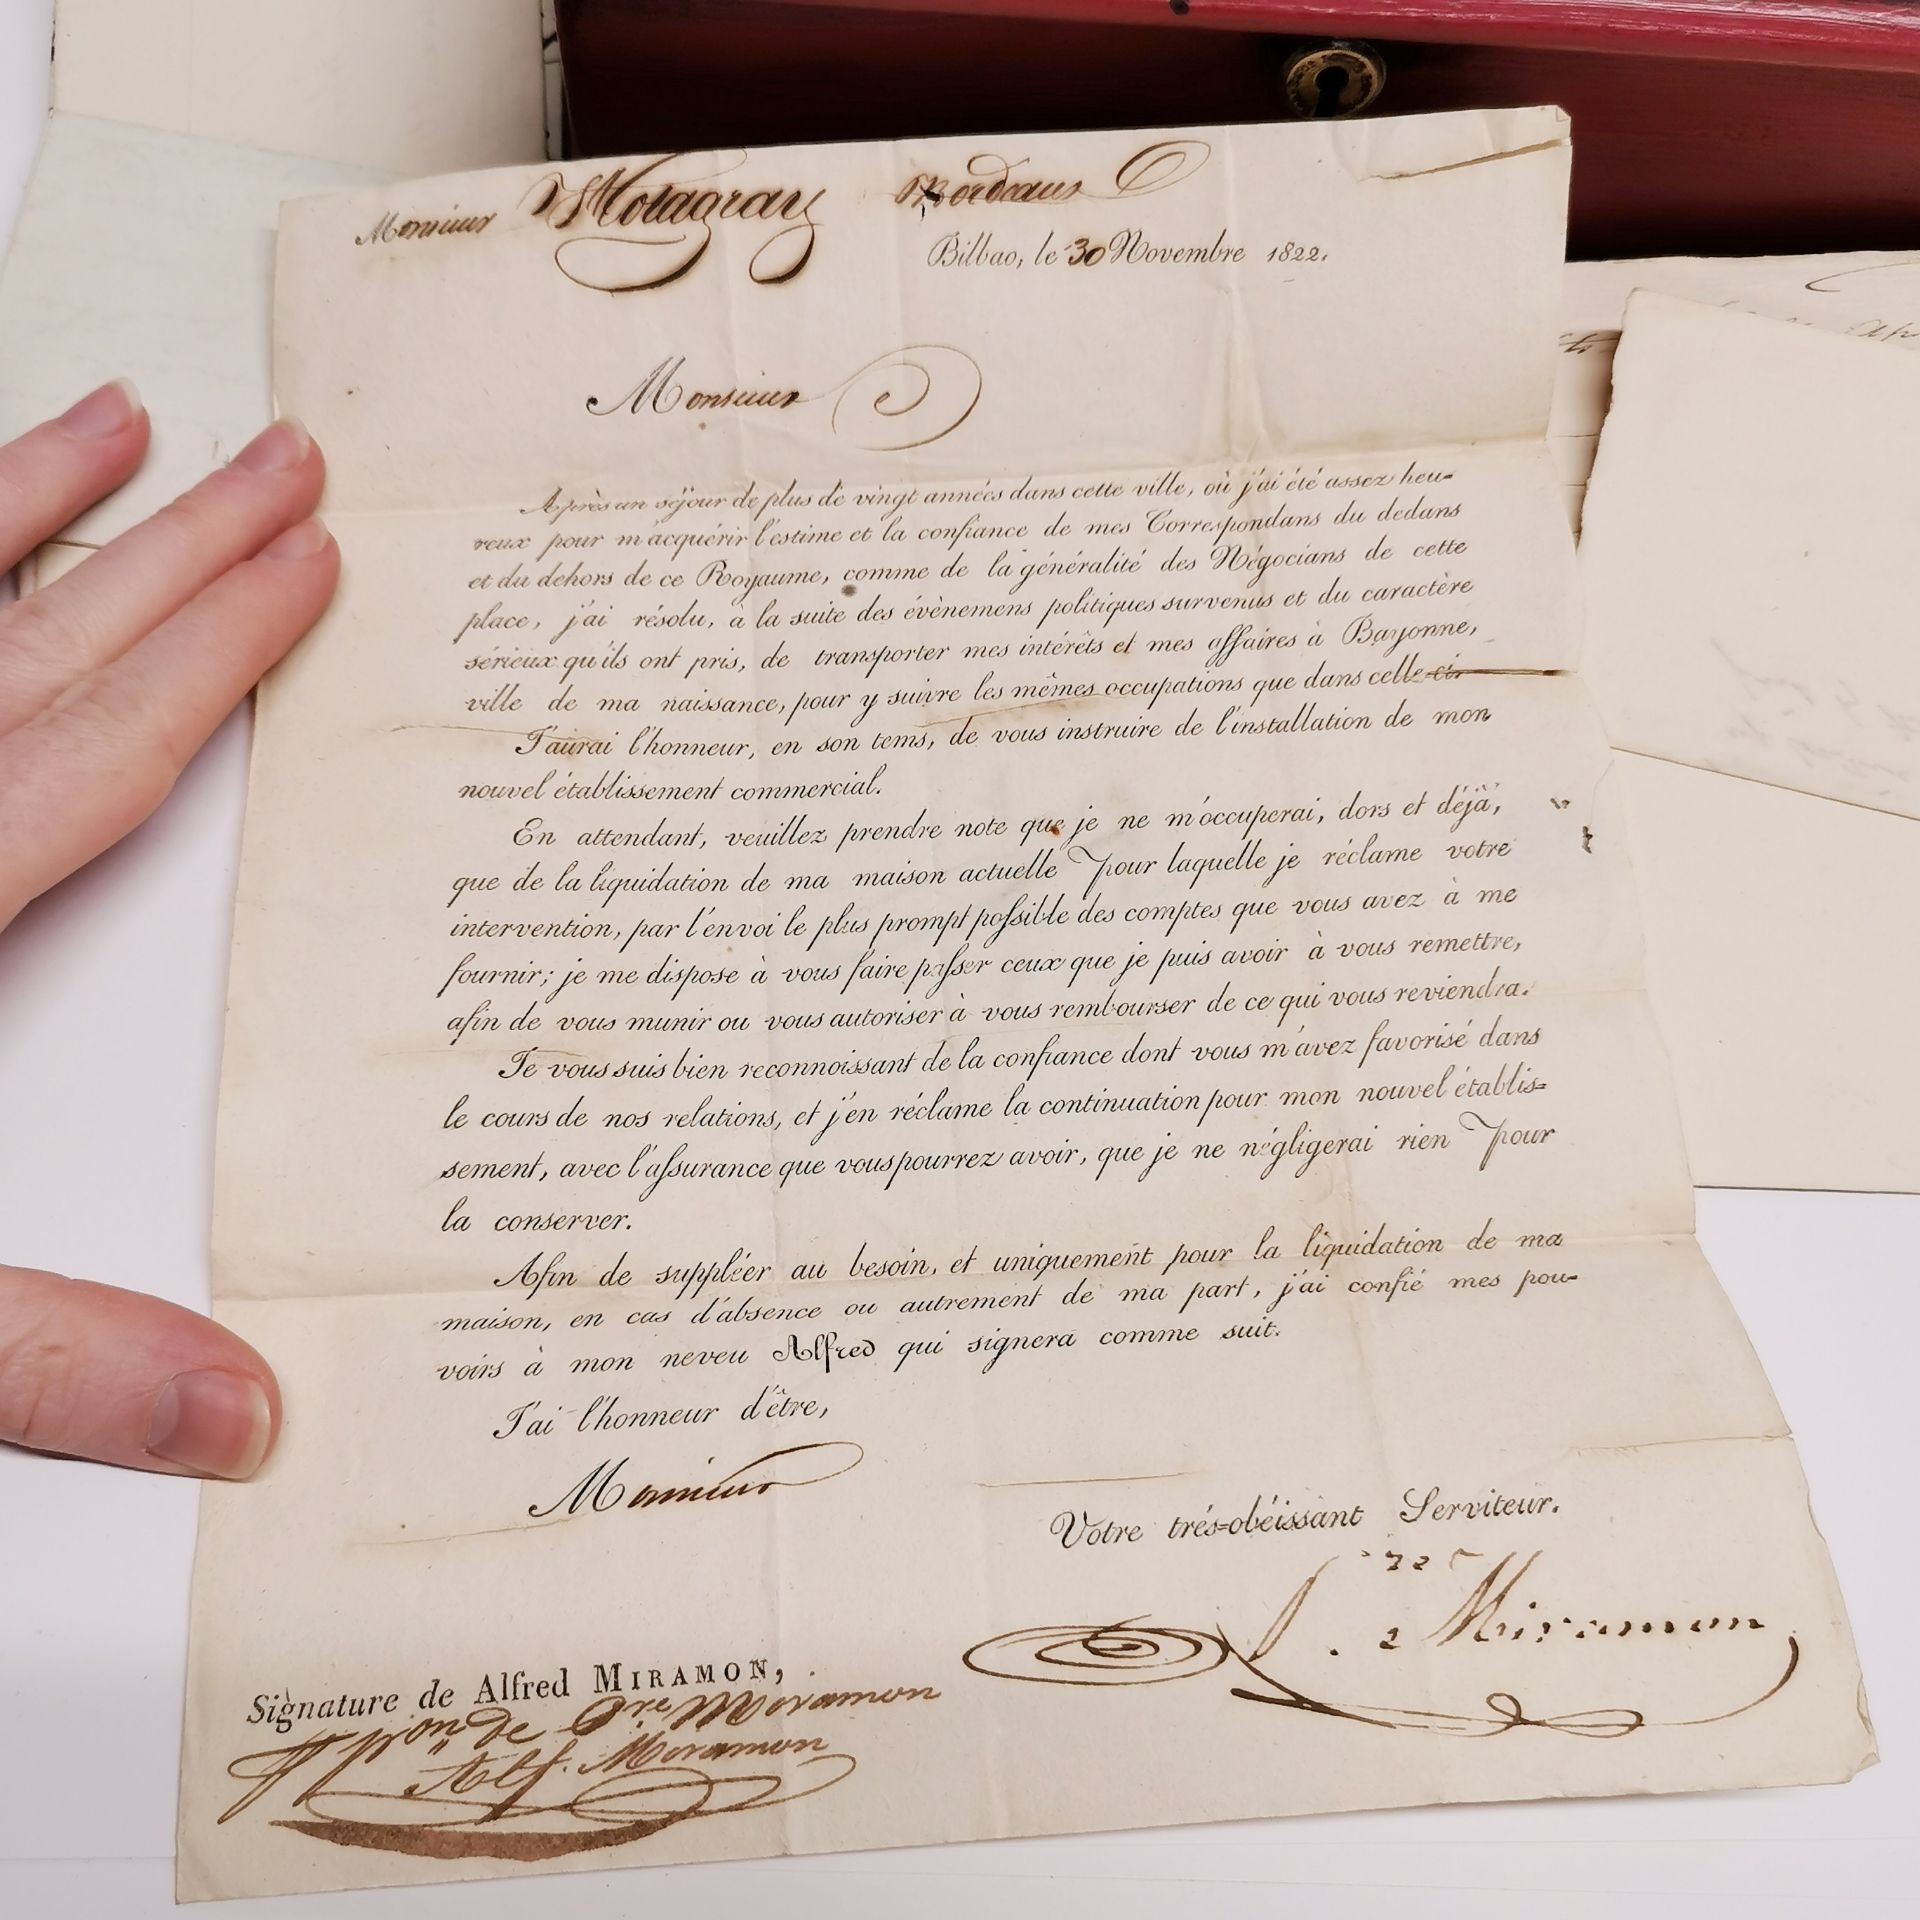 Monsieur Bordeaux
Bilbao, le 30 Novembre 1822.
Monsieur
Après un séjour de plus de vingt années dans cette ville, où j'ai été assez heu-
reux pour m'acquérir l'estime et la confiance de mes Correspondans du dedans
et du dehors de ce Royaume, comme de la généralité des Négocians de cette
place, j'ai résolu, à la suite des évènemens politiques survenus et du caractère
sérieux qu'ils ont pris, de transporter mes intérêts et mes affaires à Bayonne,
ville de ma naissance, pour y suivre les mêmes occupations que dans celle-ci.
J'aurai l'honneur, en son tems, de vous instruire de l'installation de mon
nouvel établissement commercial.
En attendant, veuillez prendre note que je ne m'occuperai, dors et déjà,
que de la liquidation de ma maison actuelle pour laquelle je réclame votre
intervention, par l'envoi le plus prompt possible des comptes que vous avez à me
fournir; je me dispose à vous faire passer ceux que je puis avoir à vous remettre,
afin de vous munir ou vous autoriser à vous rembourser de ce qui vous reviendra.
Je vous suis bien reconnoissant de la confiance dont vous m'avez favorisé dans
le cours de nos relations, et j'en réclame la continuation pour mon nouvel établis=
sement, avec l'assurance que vous pourrez avoir, que je ne négligerai rien pour
la conserver.
Afin de suppléer au besoin, et uniquement pour la liquidation de ma
maison, en cas d'absence ou autrement de ma part, j'ai confié mes pou-
voirs à mon neveu Alfred qui signera comme suit.
J'ai l'honneur d'être,
Monsieur
Votre trés=obéissant Serviteur.
Miramon
Signature de Alfred MIRAMON,
pon de Pre Miramon
Alf. Miramon